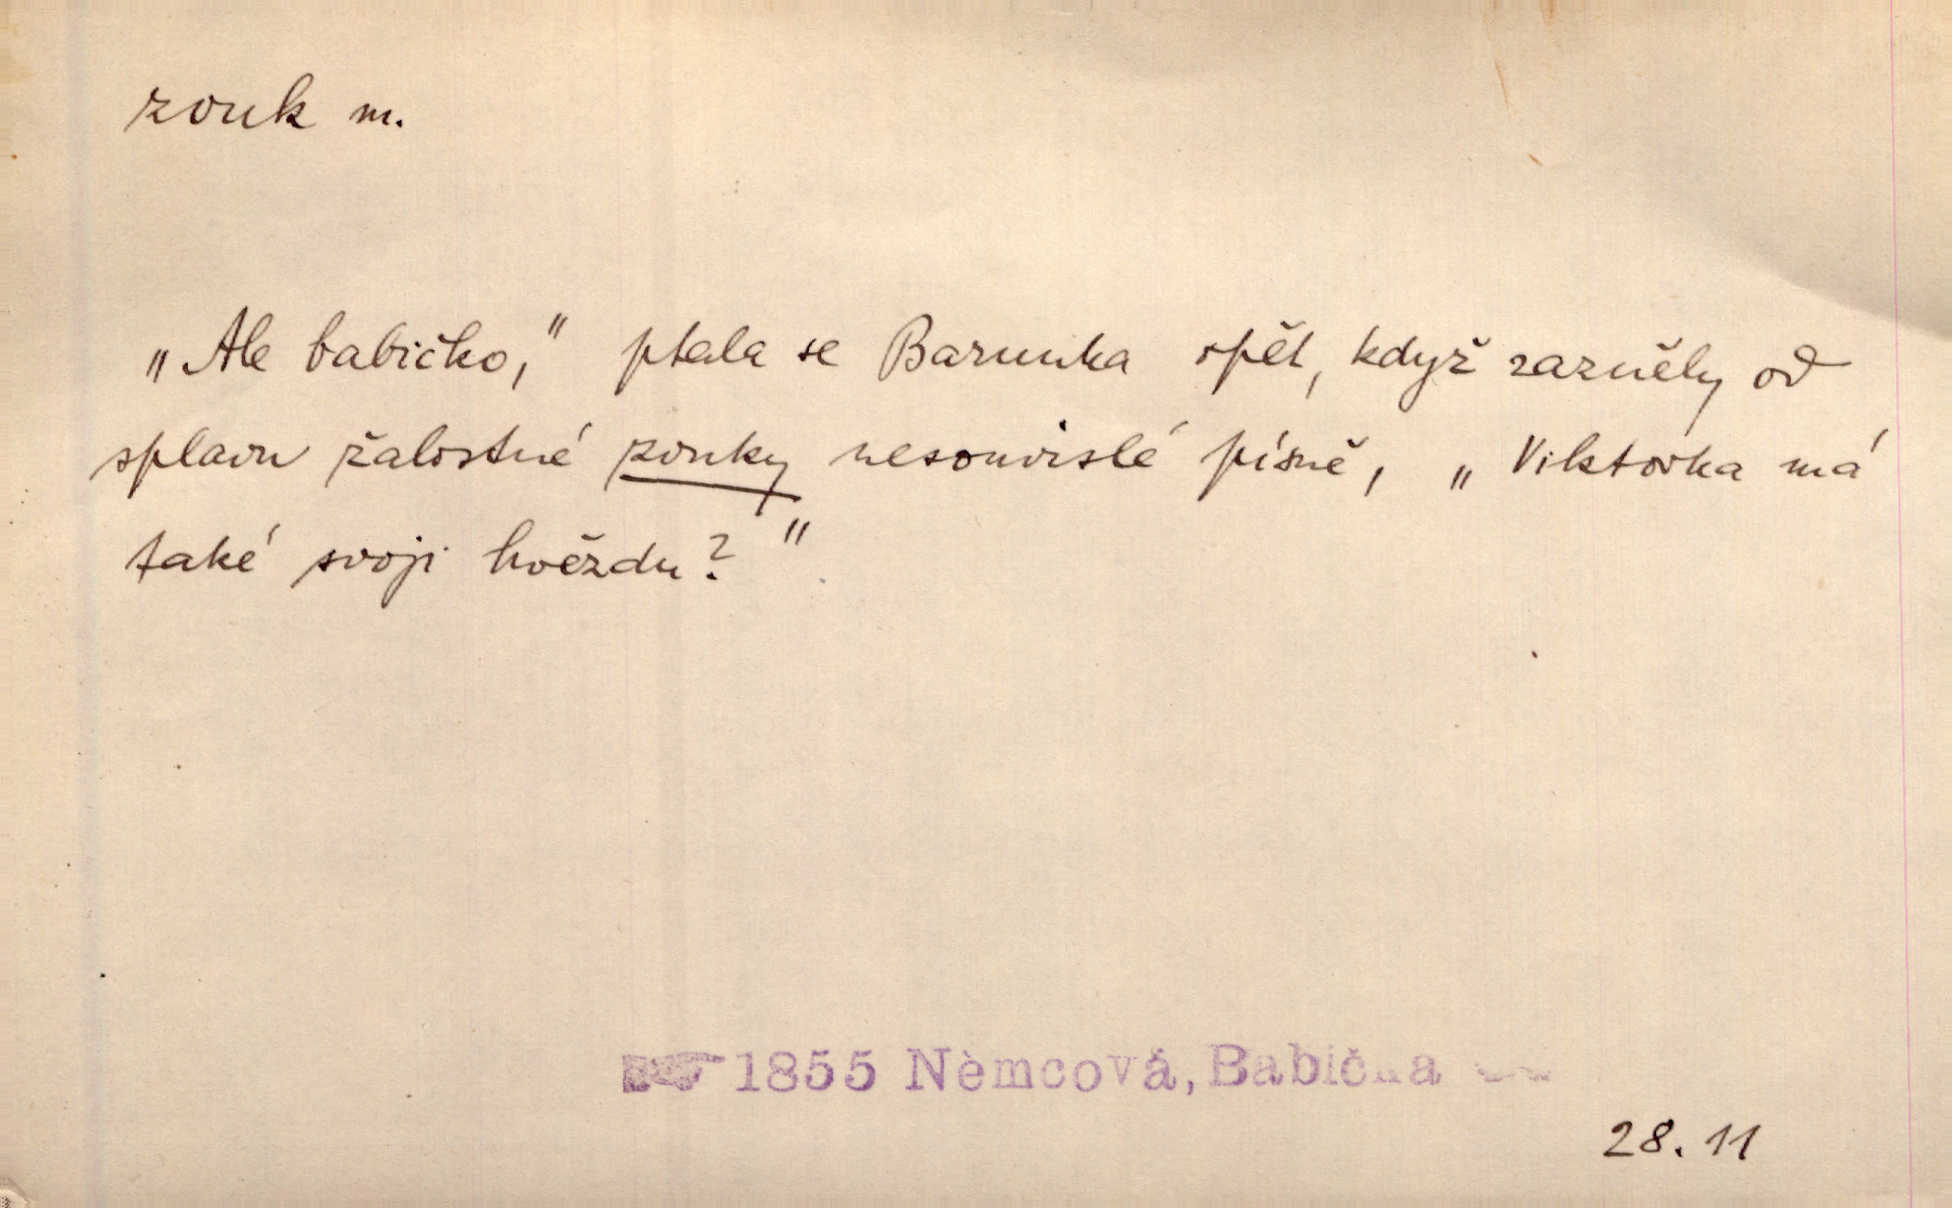 zvuk m.
„Ale babičko,“ ptala se Barunka opět, když zazněly od
splavu žalostné zvuky nesouvislé písně, „Viktorka má
také svoji hvězdu?“
1855 Němcová, Babička
28.11